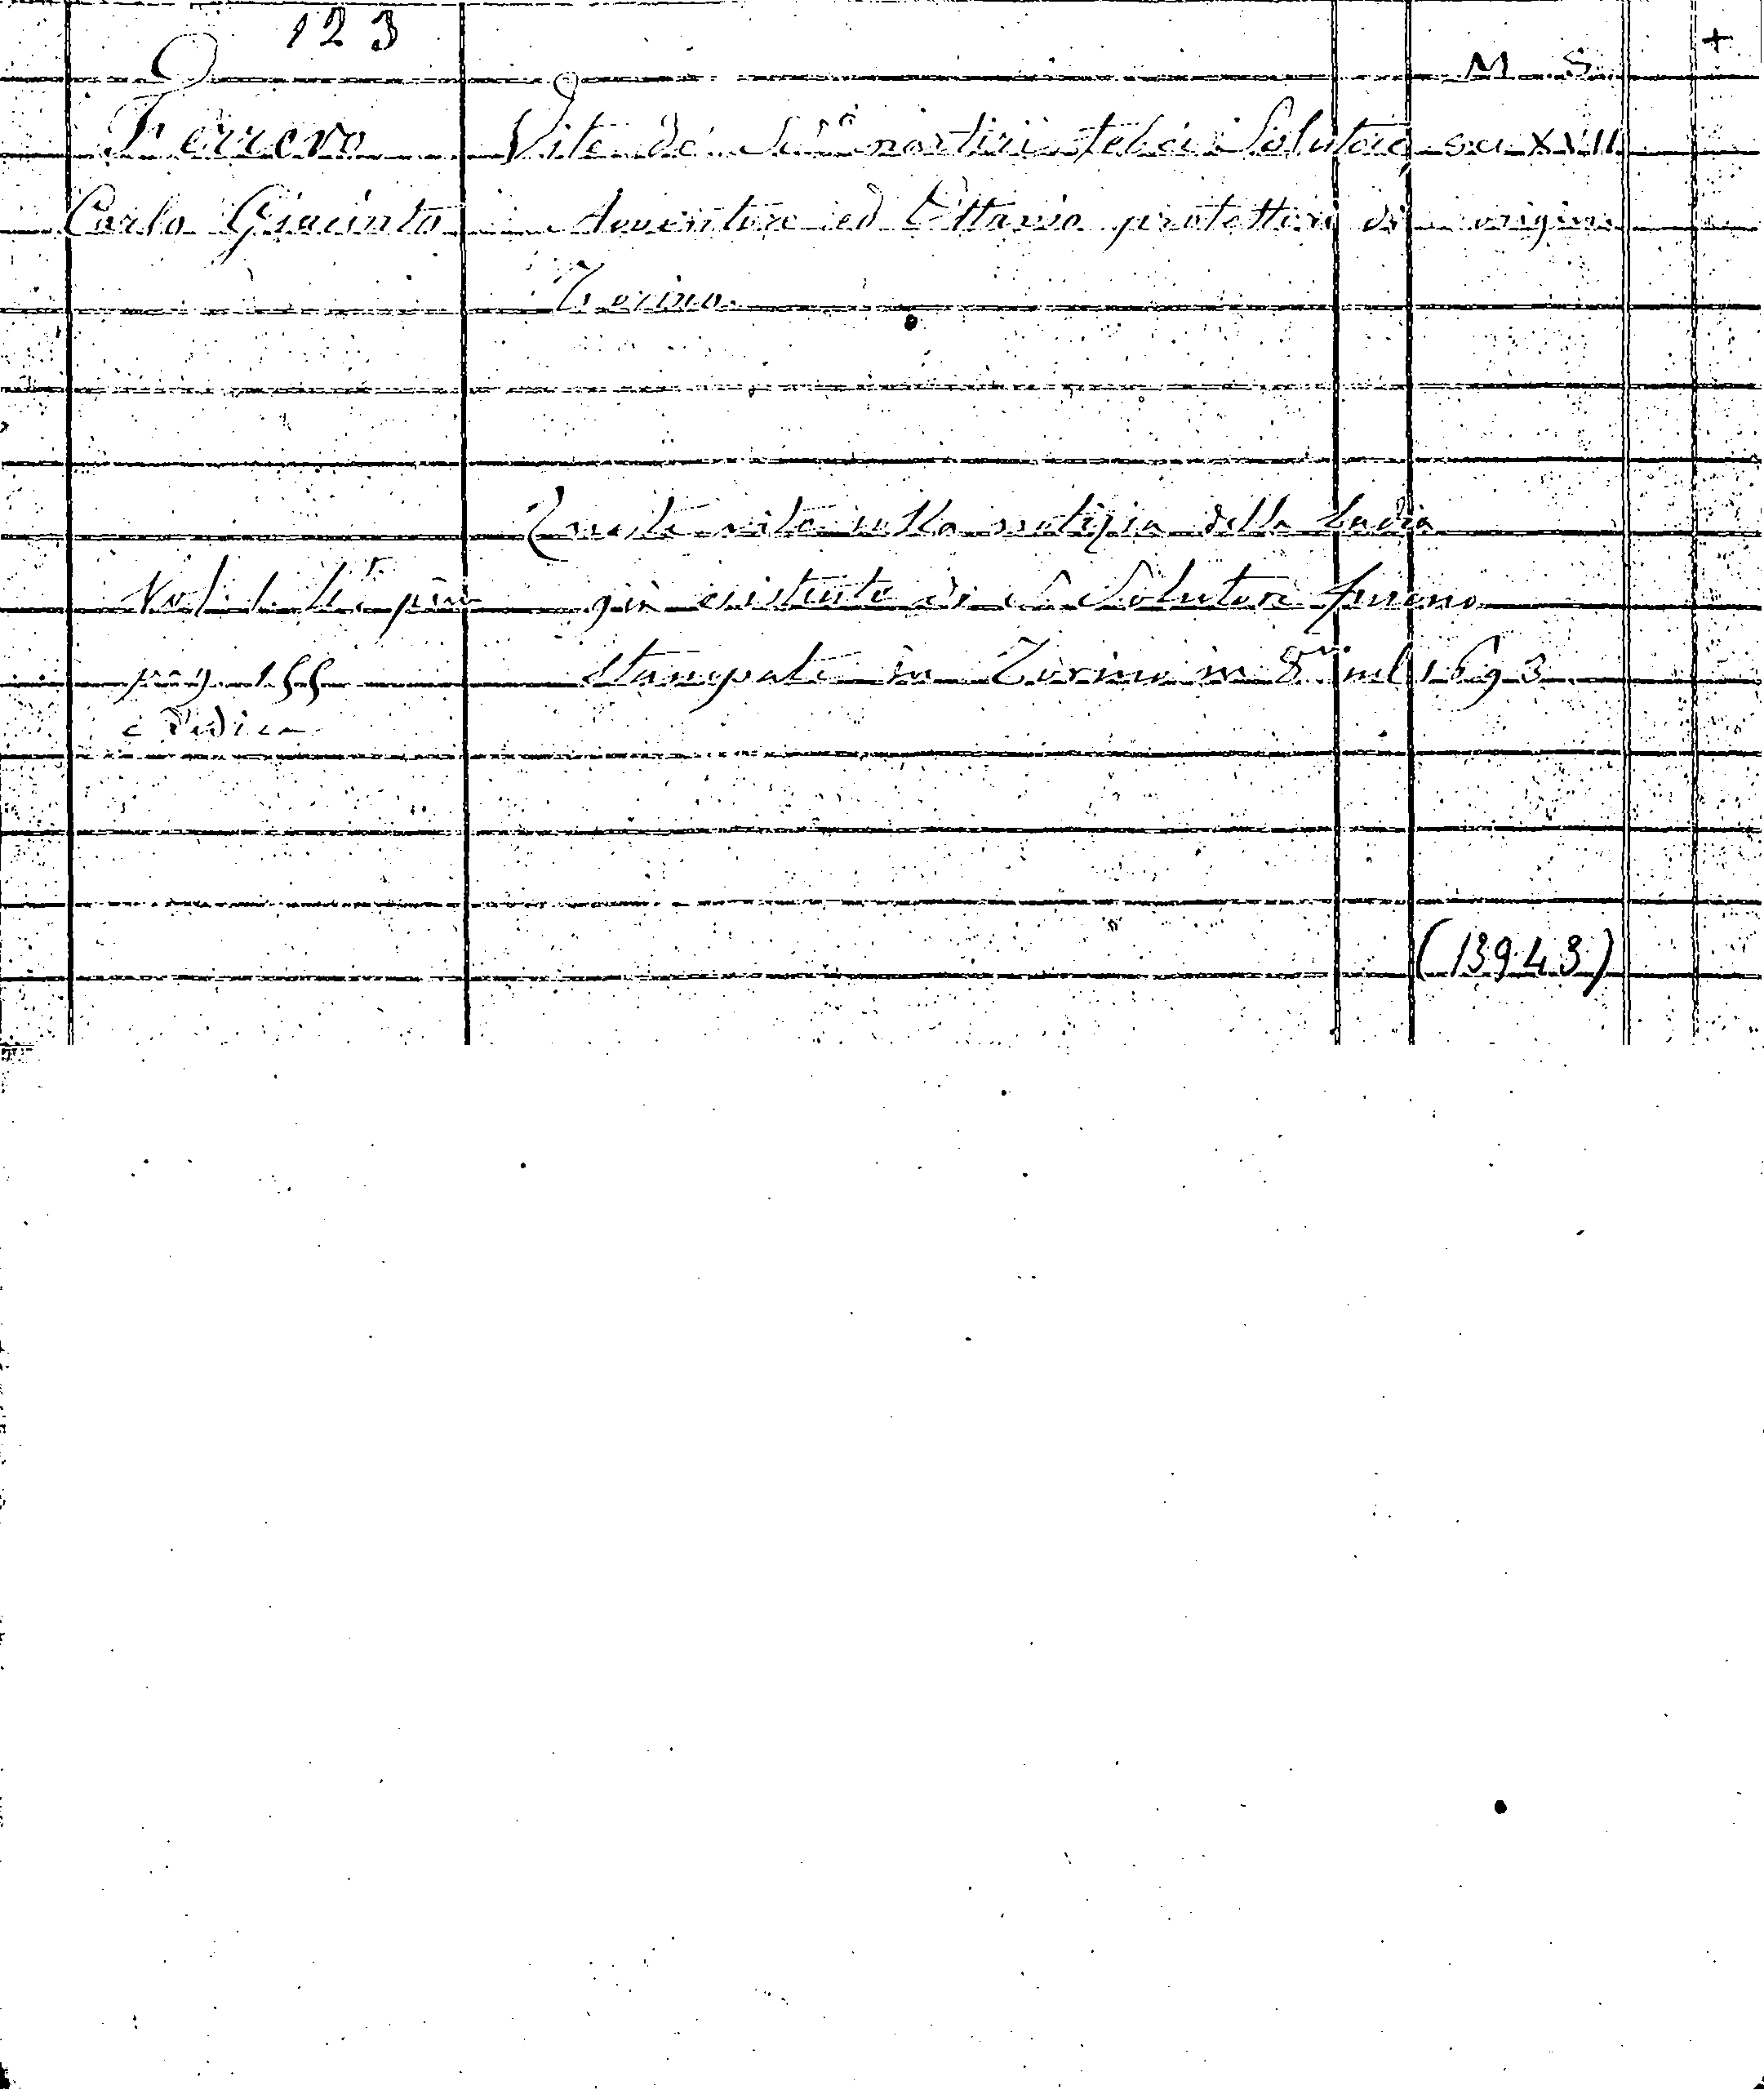 123
M. S. +
Ferrero Vite de' martiri Solutore sec XVII
Carlo Giacinto Avventore ed Ottavio protettori di origin.
Torino.
Queste vite colla notizia della badia
già esistente di S. Solutore furono
pag. 155 stampate in Torino in 8° nel 1693
e Dedica
(13943)